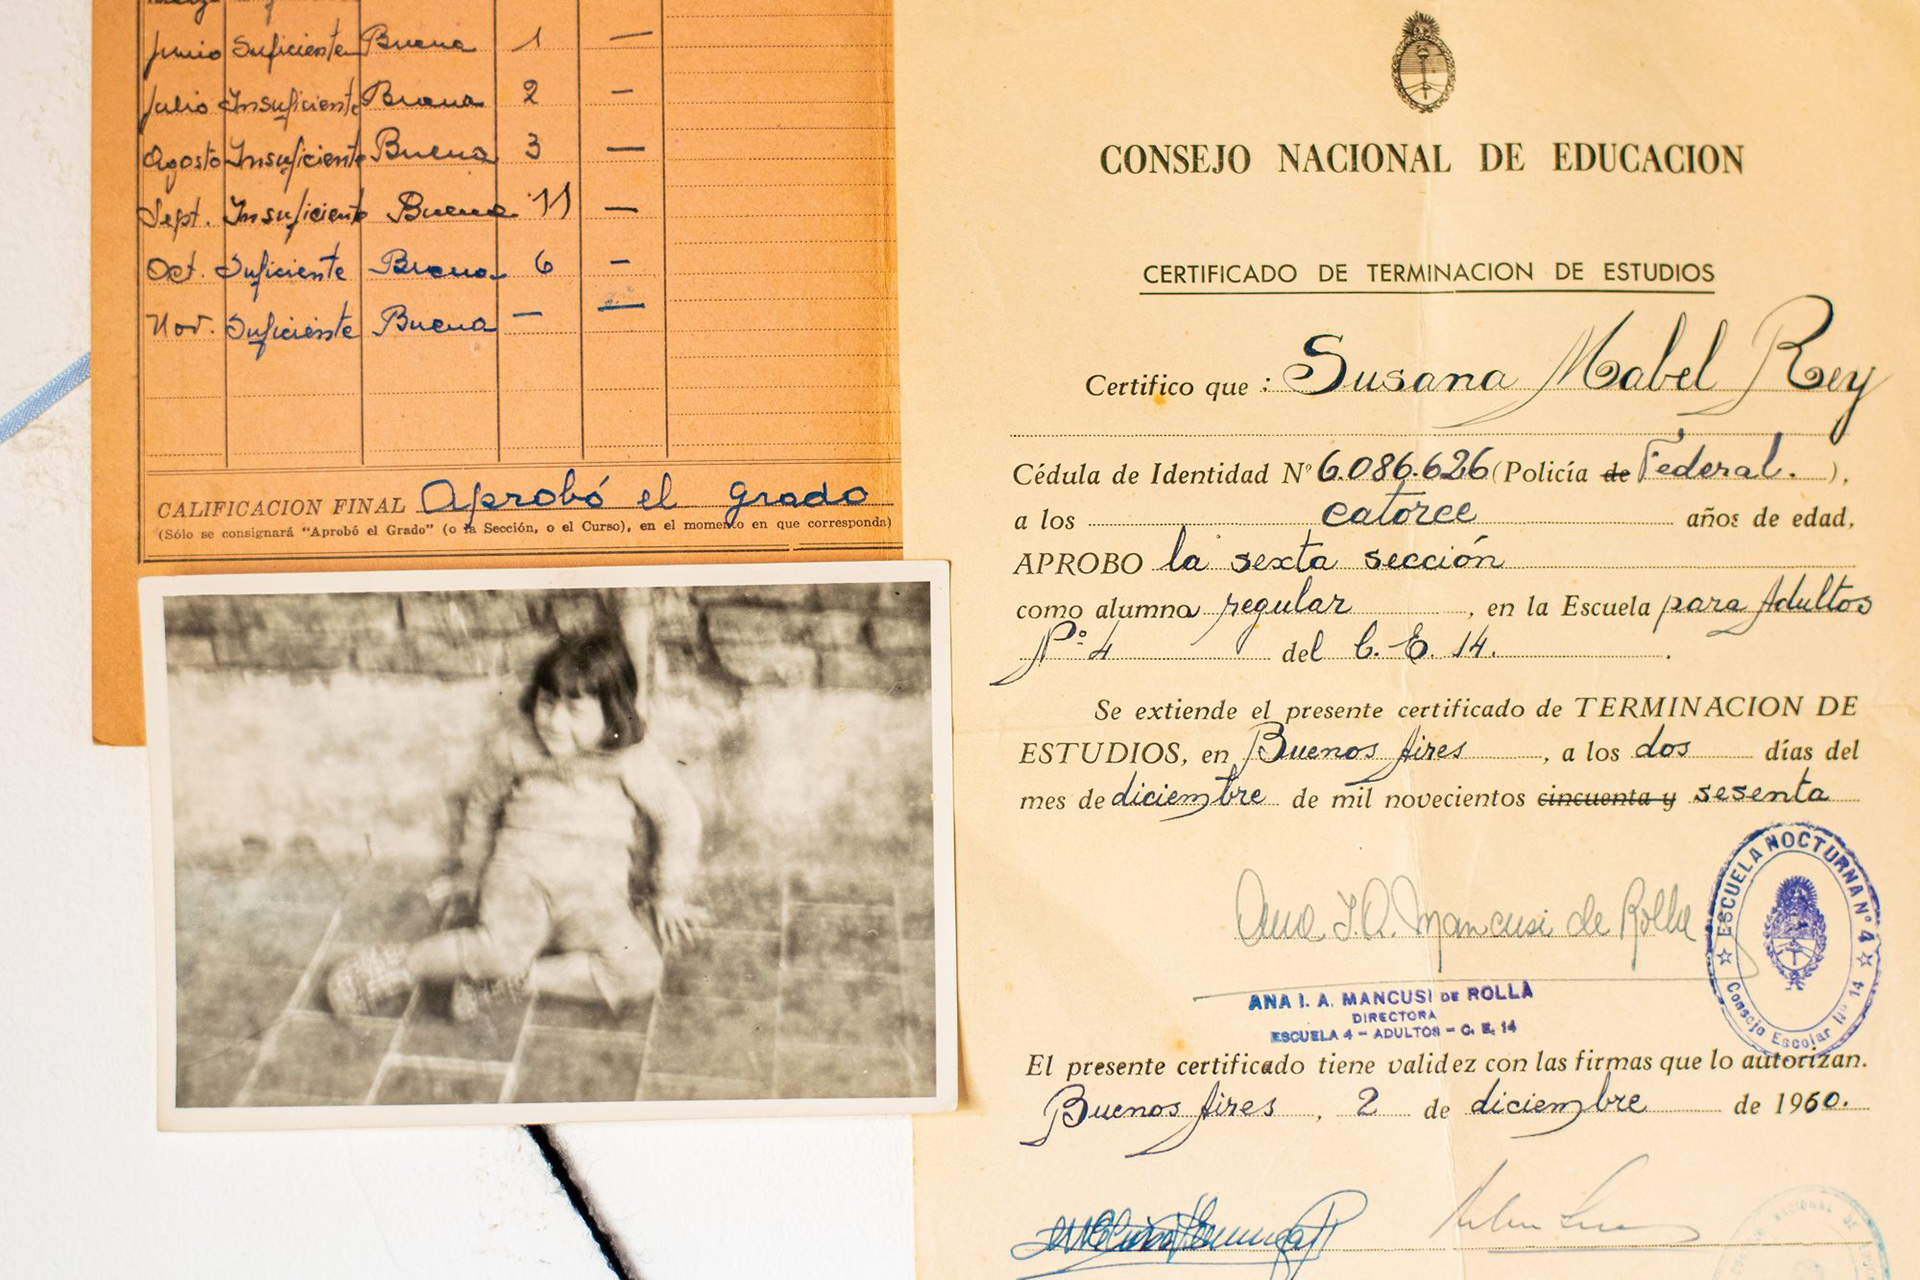 Junio Suficiente Buena 1 —
Julio Insuficiente Buena 2 —
Agosto Insuficiente Buena 3 —
Sept. Insuficiente Buena 11 —
Oct. Suficiente Buena 6 —
Nov. Suficiente Buena — —
CALIFICACION FINAL Aprobó el grado
(Sólo se consignará "Aprobó el Grado" (o la Sección, o el Curso), en el momento en que corresponda)
CONSEJO NACIONAL DE EDUCACION
CERTIFICADO DE TERMINACION DE ESTUDIOS
Certifico que : Susana Mabel Rey
Cédula de Identidad Nº 6.086.626 (Policía de Federal. ),
a los catorce años de edad,
APROBO la sexta sección
como alumna regular, en la Escuela para Adultos
Nº 4 del C. E. 14.
Se extiende el presente certificado de TERMINACION DE
ESTUDIOS, en Buenos Aires, a los dos días del
mes de diciembre de mil novecientos cincuenta y sesenta
Ana I. A. Mancusi de Rolla
ANA I. A. MANCUSI DE ROLLA
DIRECTORA
ESCUELA 4 - ADULTOS - C. E. 14
ESCUELA NOCTURNA Nº 4
Consejo Escolar Nº 14
El presente certificado tiene validez con las firmas que lo autorizan.
Buenos Aires, 2 de diciembre de 1960.
NACIONAL DE